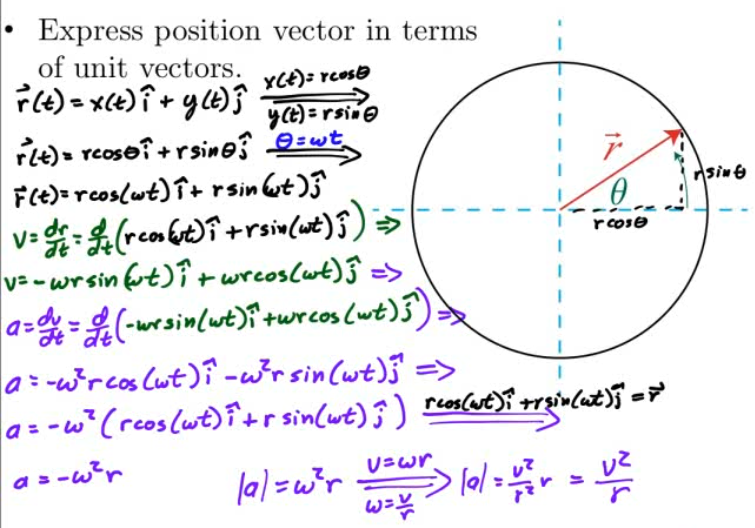 • Express position vector in terms
of unit vectors.
x(t)=rcosθ
r⃗(t)=x(t)î+y(t)ĵ
y(t)=rsinθ
r⃗(t)=rcosθî+rsinθĵ θ=ωt
r⃗(t)=rcos(ωt)î+rsin(ωt)ĵ
v=dr/dt=d/dt(rcos(ωt)î+rsin(ωt)ĵ) ⇒
v=-ωrsin(ωt)î+ωrcos(ωt)ĵ ⇒
a=dv/dt=d/dt(-ωrsin(ωt)î+ωrcos(ωt)ĵ) ⇒
a=-ω²rcos(ωt)î-ω²rsin(ωt)ĵ ⇒
a=-ω²(rcos(ωt)î+rsin(ωt)ĵ) rcos(ωt)î+rsin(ωt)ĵ=r⃗
a=-ω²r
|a|=ω²r v=ωr ω=v/r ⇒ |a|=v²/r² r = v²/r
r⃗
θ
rsinθ
rcosθ